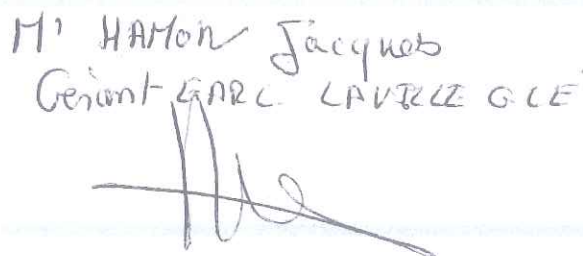 Mr HAMON Jacques
Gérant EARL LAVILLE GLE